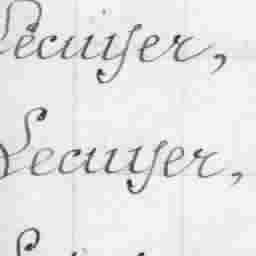 Lecuyer,
Lecuyer,